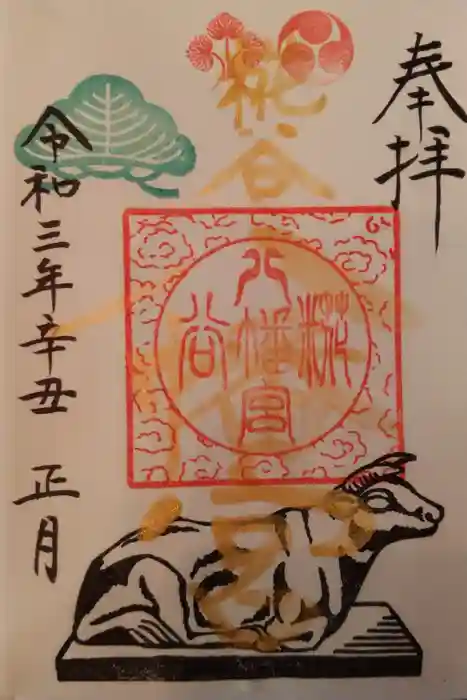 奉拝
糀谷八幡宮
糀谷
八幡宮
令和三年辛丑 正月